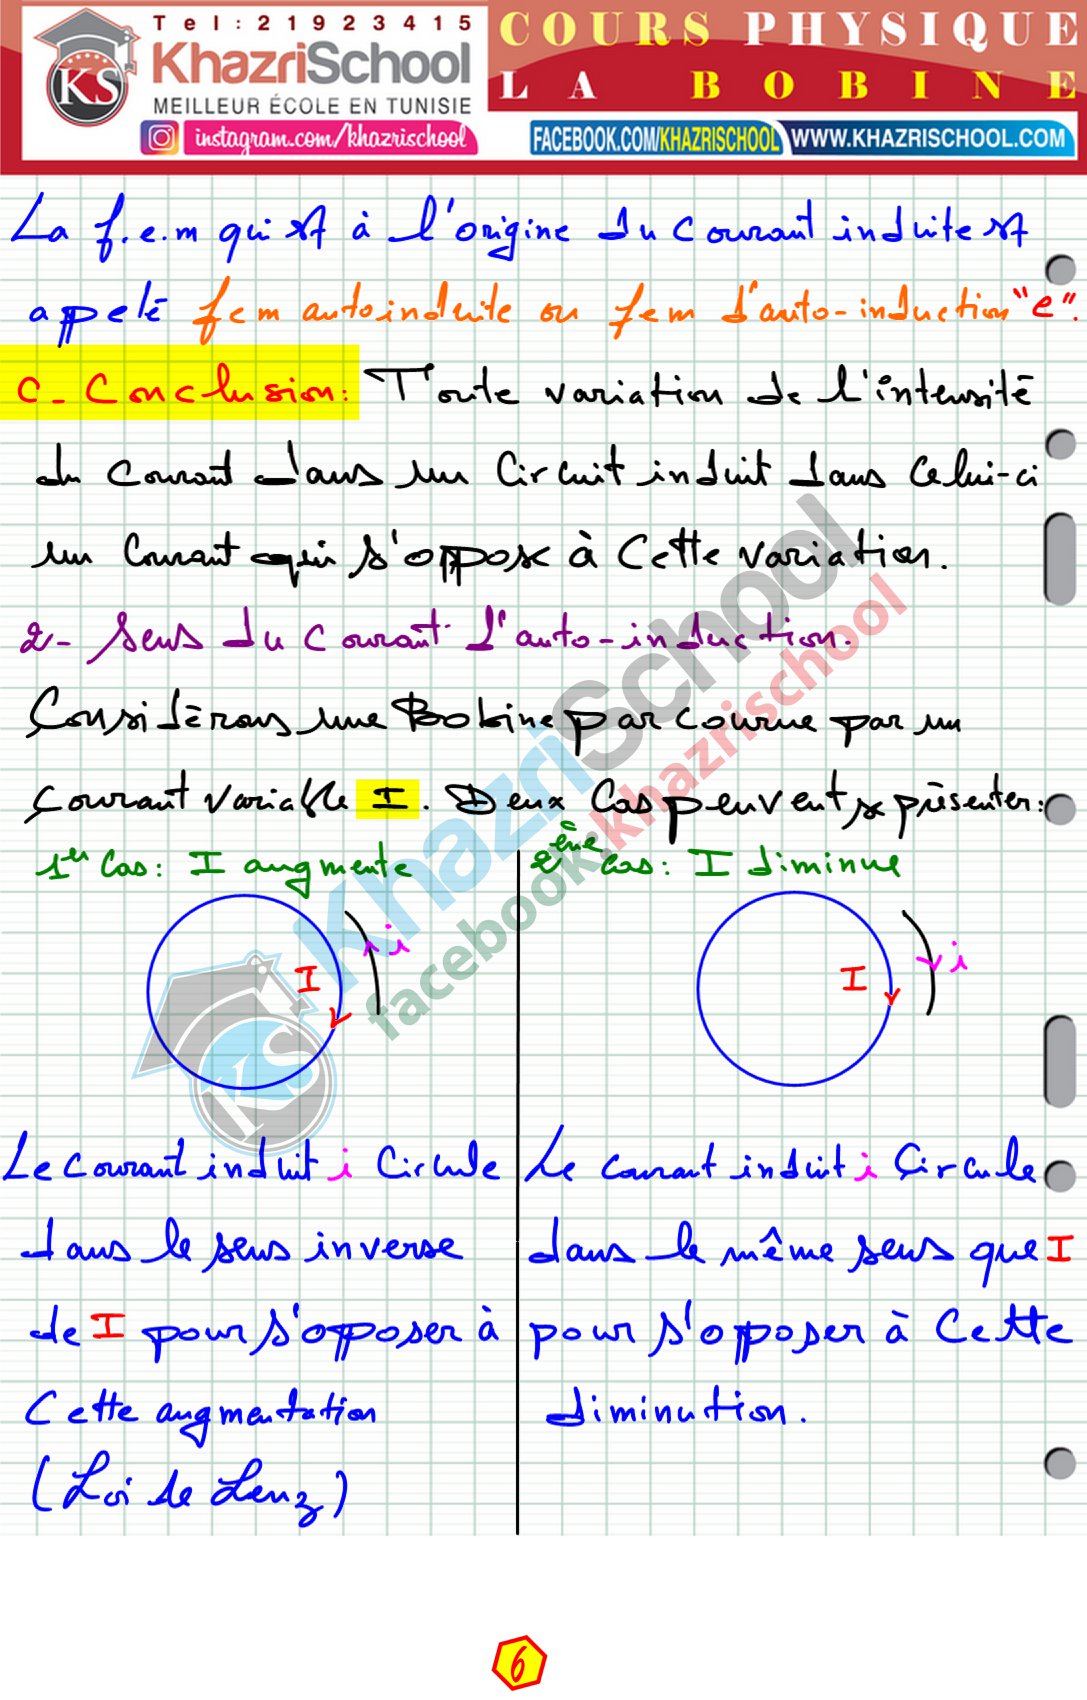 Tel: 21923415
KhazriSchool
MEILLEUR ÉCOLE EN TUNISIE
instagram.com/khazrischool
COURS PHYSIQUE
LA BOBINE
FACEBOOK.COM/KHAZRISCHOOL
WWW.KHAZRISCHOOL.COM
KS
La f.e.m qui est à l'origine du courant induite st
appelé fem autoinduite ou fem d'auto-induction "e".
C- Conclusion: Toute variation de l'intensité
du courant dans un circuit induit dans celui-ci
un courant qui s'oppose à cette variation.
2- Sens du courant d'auto-induction.
Considérons une Bobine parcourue par un
courant variable I. Deux cas peuvent se présenter:
1er cas: I augmente
I
i
Le courant induit i circule
dans le sens inverse
de I pour s'opposer à
cette augmentation
(Loi de Lenz)
2ème cas: I diminue
I
i
Le courant induit i circule
dans le même sens que I
pour s'opposer à cette
diminution.
KhazriSchool
facebook:khazrischool
KS
6